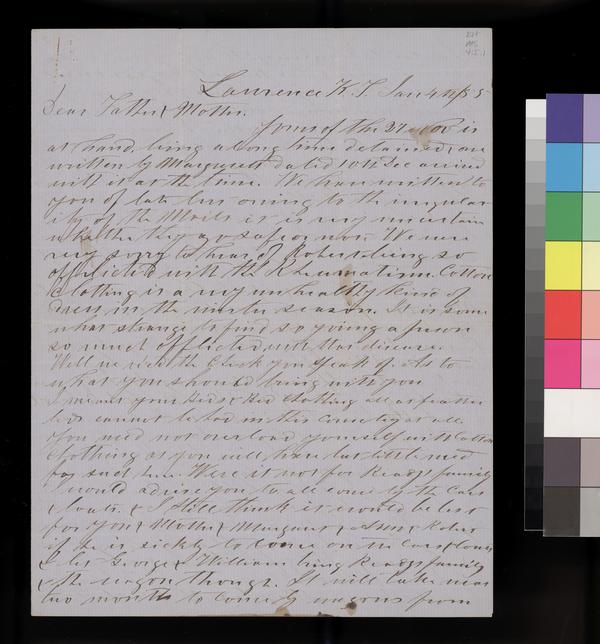 Lawrence K.T Jan 4th/55
Dear Father & Mother.
Yours of the 27 Nov is
at hand, being a long time detained, & one
written by Margarett dated 10th Dec arrived
with it at the time. We have written to
you of late but owing to the irregular
ity of the Mails it is very uncertain
whether they go safe or not. We were
very sorry to hear of Robert being so
afflicted with the Rheumatism. Cotton
Clothing is a very unhealthy kind of
dress in the winter season. It is some
what strange to find so young a person
so much afflicted with that disease.
Well we rec'd the Check you speak of. As to
what you should bring with you
I meant your Beds & Bed Clothing all as feather
beds cannot be had in this Country at all
You need not overload yourself with Cotton
Clothing as you will have but little need
for such here. Were it not for Ready's family
I would advise you to all come by the Cars
& boats. & I still think it would be best
for you & Mother & Margaret & Ann & Robert
if he is sickly to come on the Cars & boats
& let George & William bring Ready's family
& the wagon though. It will take near
two months to come by wagons from